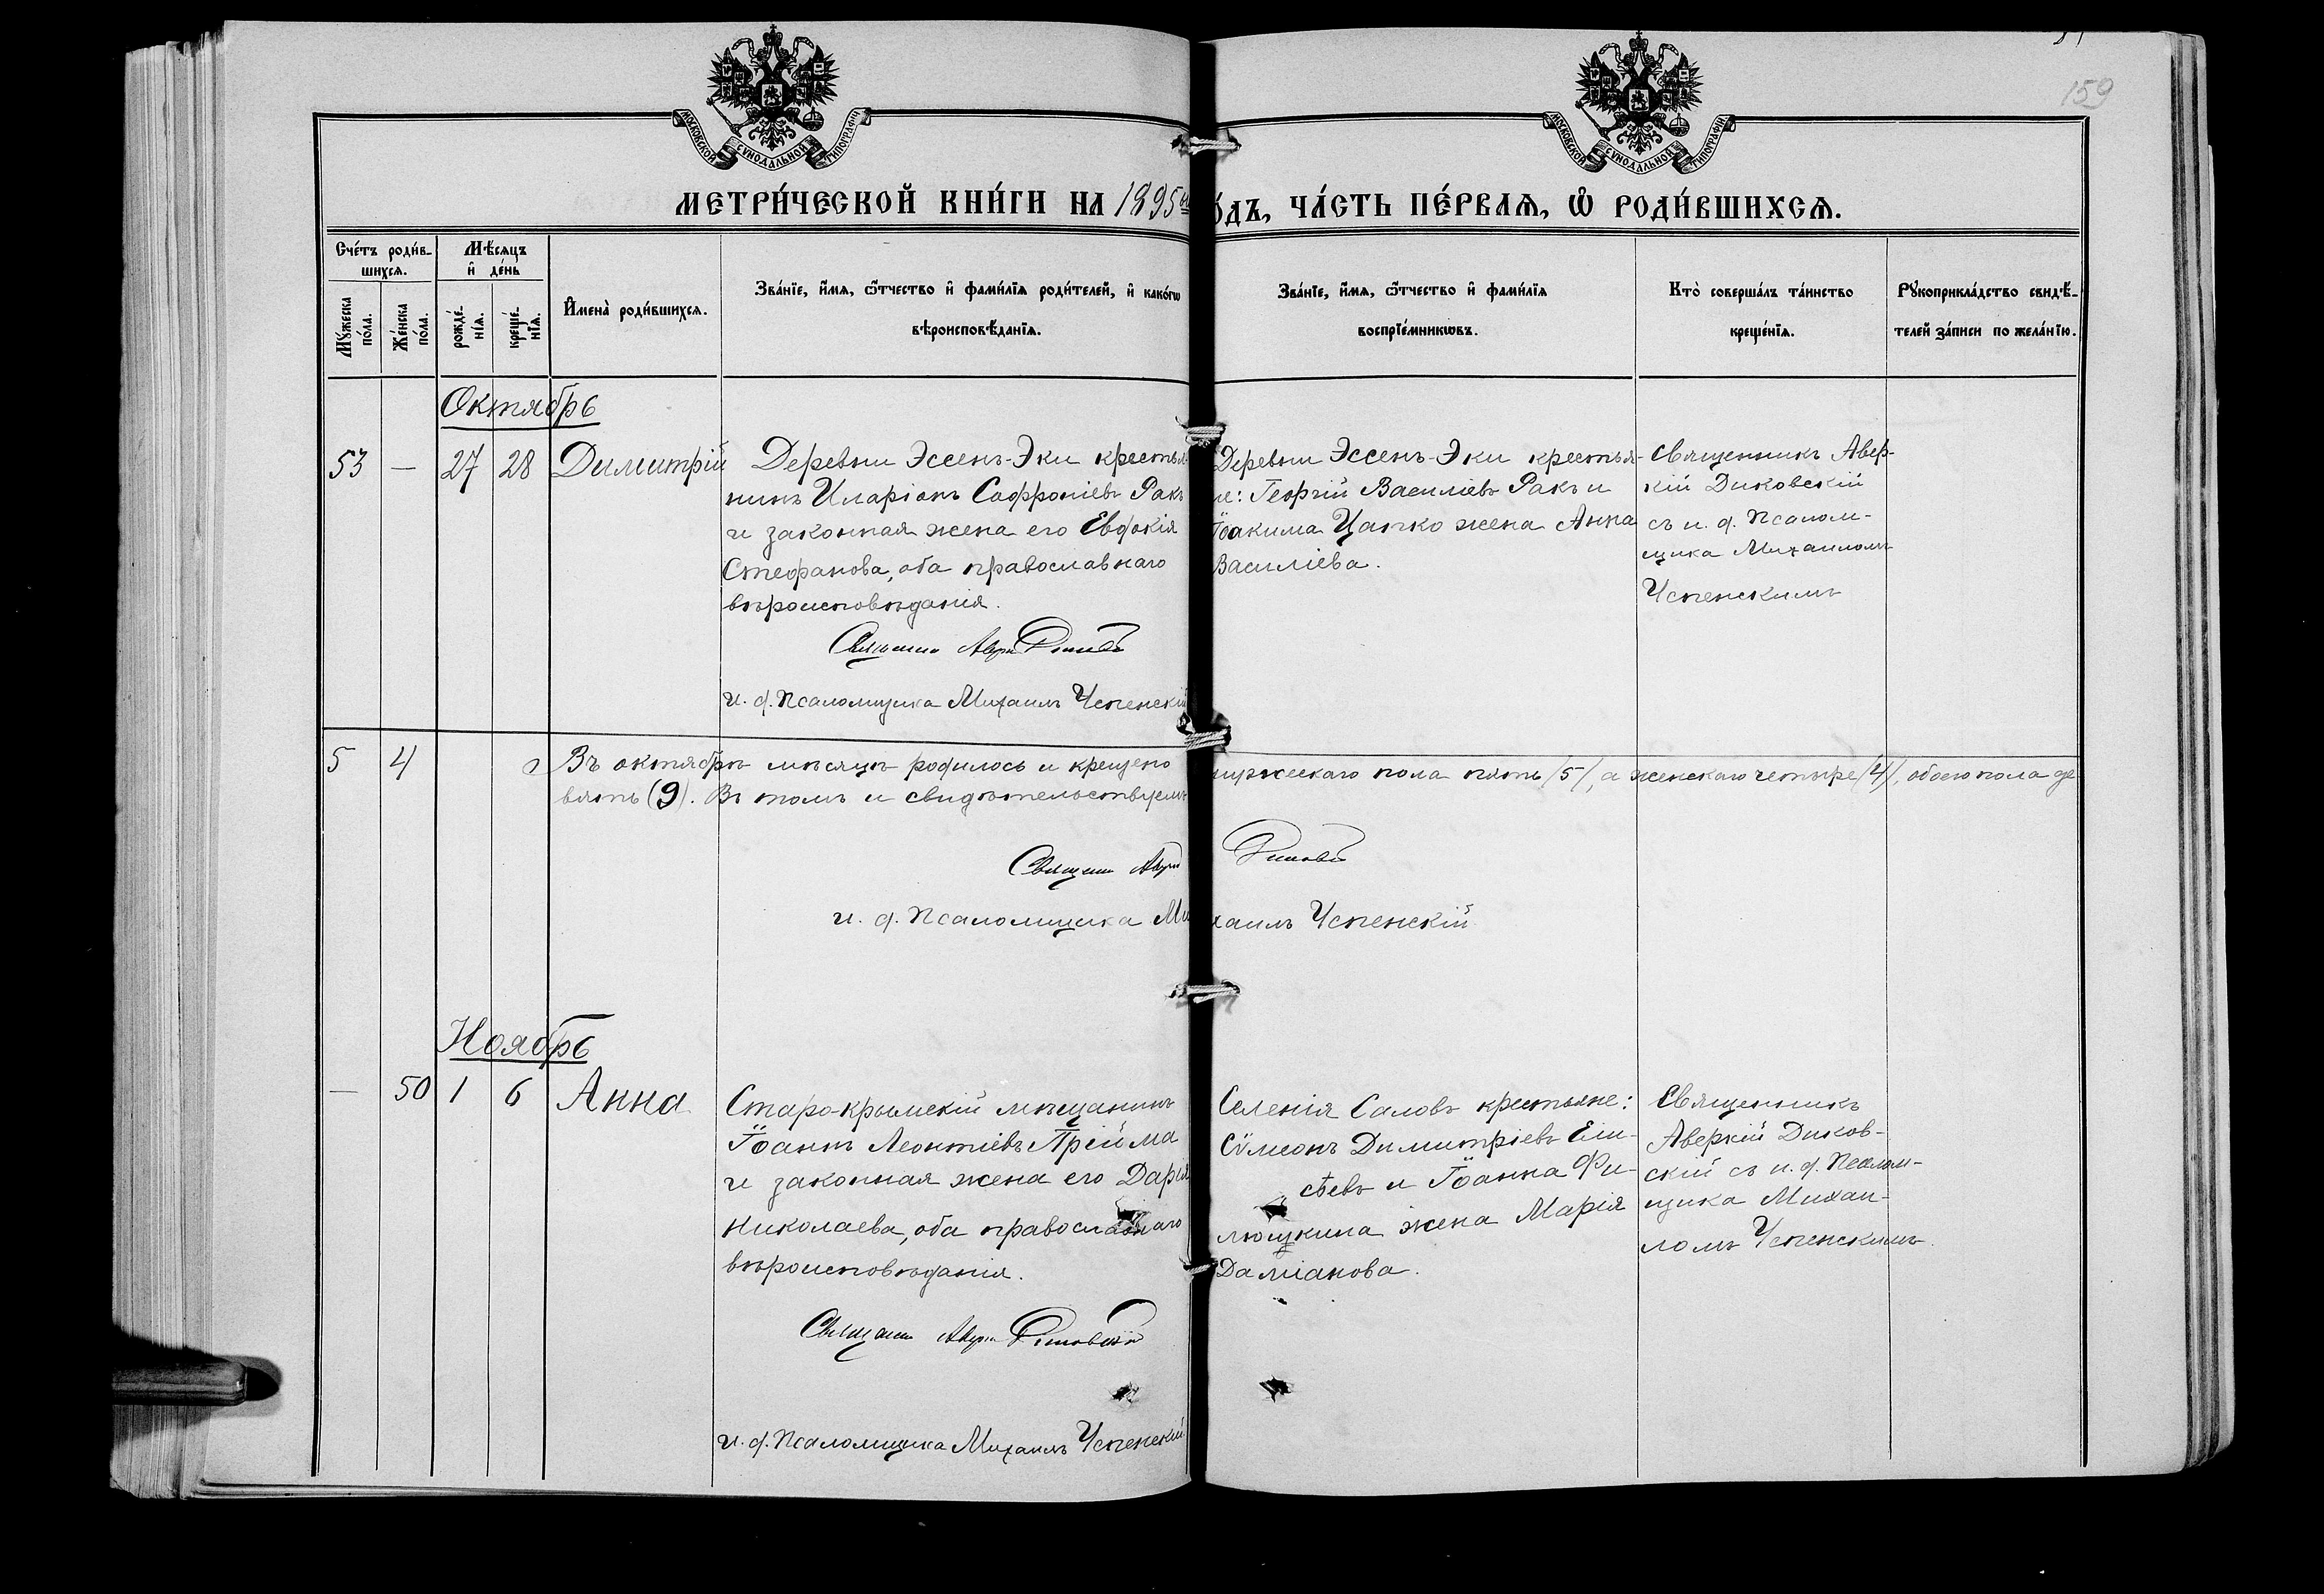 159
МОСКОВСКОЙ СѴНОДАЛЬНОЙ ТИПОГРАФІИ
МОСКОВСКОЙ СѴНОДАЛЬНОЙ ТИПОГРАФІИ
МЕТРИ́ЧЕСКОЙ КНИ́ГИ НА 1895
ЧА́СТЬ ПЕ́РВАѦ, Ѡ҆ РОДИ́ВШИХСѦ.
Сче́тъ роди́в-
шихсѧ.
Мꙋ́жеска по́ла.
Же́нска по́ла.
Мѣ́сѧцъ
и҆ де́нь
рожде́-
нїѧ.
креще́-
нїѧ.
И҆мена̀ роди́вшихсѧ.
Зва́нїе, и҆́мѧ, ѻ҆́тчество и҆ фами́лїѧ роди́телей, и҆ како́гѡ
вѣроисповѣ́данїѧ.
Зва́нїе, и҆́мѧ, ѻ҆́тчество и҆ фами́лїѧ
воспрїе́мникѡвъ.
Кто̀ соверша́лъ та́инство
креще́нїѧ.
Рꙋкоприкла́дство свидѣ́-
телей за́писи по жела́нїю.
Октябрь
53 — 27 28 Димитрій
Деревни Эссенъ-Эки крестья-
нинъ Иларіонъ Софроніевъ Ракъ
и законная жена его Евдокія
Стефанова, оба православнаго
вѣроисповѣданія.
и. д. Псаломщика Михаилъ Успенскій
Деревни Эссенъ-Эки крестья-
не: Георгій Василіевъ Ракъ и
Іоакима Цапко жена Анна
Василіева.
Священникъ Авер-
кій Диковскій
съ и. д. Псалом-
щика Михаиломъ
Успенскимъ
5 4 Въ октябрѣ мѣсяцѣ родилось и крещено мужескаго пола пять /5/, а женскаго четыре /4/, обоего пола де
вять (9). Въ томъ и свидѣтельствуемъ
и. д. Псаломщика Михаилъ Успенскій
Ноябрь
— 50 1 6 Анна
Старо-крымскій мѣщанинъ
Іоаннъ Леонтіевъ Пріима
и законная жена его Дарія
Николаева, оба православнаго
вѣроисповѣданія.
и. д. Псаломщика Михаилъ Успенскій
Селенія Саловъ крестьяне:
Сѵмеонъ Димитріевъ Ели-
сѣевъ и Іоанна Фи-
люшкина жена Марія
Даміанова.
Священникъ
Аверкій Диков-
скій съ и. д. Псалом-
щика Михаи-
ломъ Успенскимъ